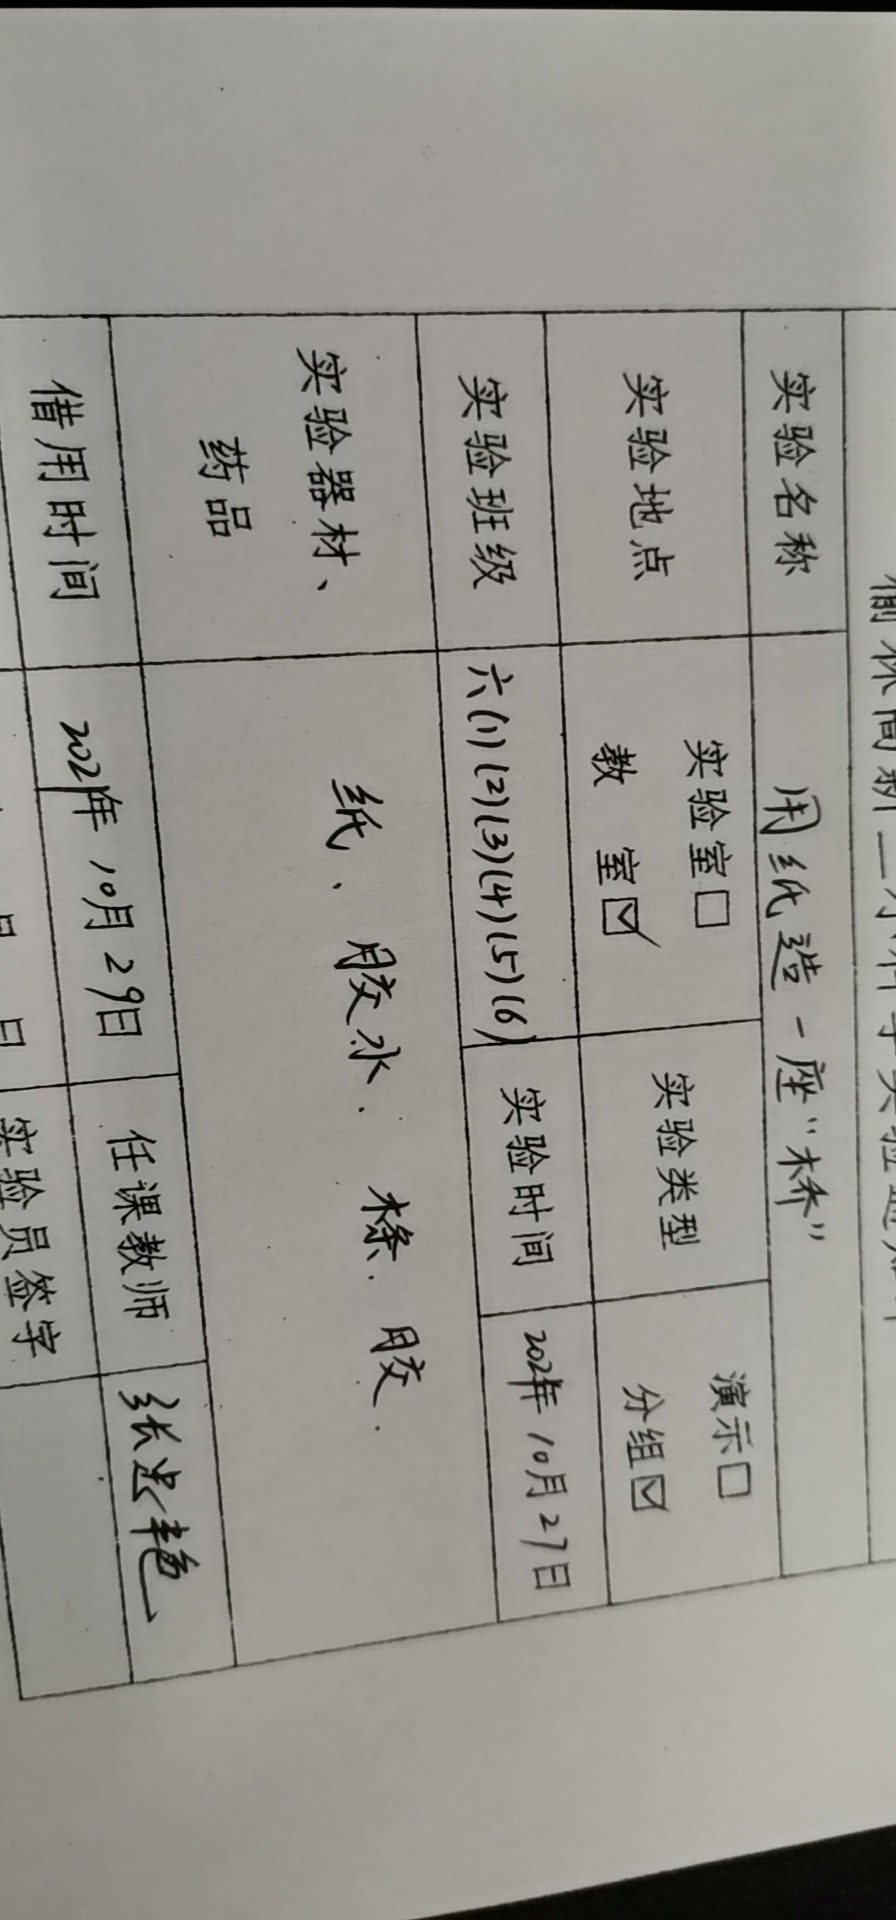 实验名称 用纸造一座“桥”
实验地点 实验室□ 教 室☑ 实验类型 演示□ 分组☑
实验班级 六(1)(2)(3)(4)(5)(6) 实验时间 2021年10月27日
实验器材、药品 纸、胶水. 胶.
借用时间 2021年10月29日 任课教师 张
月 日 实验员签字